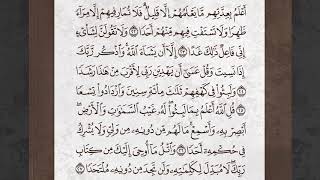 أَعْلَمُ بِعِدَّتِهِم مَّا يَعْلَمُهُمْ إِلَّا قَلِيلٌ ۗ فَلَا تُمَارِ فِيهِمْ إِلَّا مِرَآءً
ظَٰهِرًا وَلَا تَسْتَفْتِ فِيهِم مِّنْهُمْ أَحَدًا ٢٢ وَلَا تَقُولَنَّ لِشَا۟ىْءٍ
إِنِّى فَاعِلٌ ذَٰلِكَ غَدًا ٢٣ إِلَّآ أَن يَشَآءَ ٱللَّهُ ۚ وَٱذْكُر رَّبَّكَ
إِذَا نَسِيتَ وَقُلْ عَسَىٰٓ أَن يَهْدِيَنِ رَبِّى لِأَقْرَبَ مِنْ هَٰذَا رَشَدًا
٢٤ وَلَبِثُوا۟ فِى كَهْفِهِمْ ثَلَٰثَ مِا۟ئَةٍ سِنِينَ وَٱزْدَادُوا۟ تِسْعًا
٢٥ قُلِ ٱللَّهُ أَعْلَمُ بِمَا لَبِثُوا۟ ۖ لَهُۥ غَيْبُ ٱلسَّمَٰوَٰتِ وَٱلْأَرْضِ ۖ
أَبْصِرْ بِهِۦ وَأَسْمِعْ ۚ مَا لَهُم مِّن دُونِهِۦ مِن وَلِىٍّ وَلَا يُشْرِكُ
فِى حُكْمِهِۦٓ أَحَدًا ٢٦ وَٱتْلُ مَآ أُوحِىَ إِلَيْكَ مِن كِتَابِ
رَبِّكَ ۖ لَا مُبَدِّلَ لِكَلِمَٰتِهِۦ وَلَن تَجِدَ مِن دُونِهِۦ مُلْتَحَدًا ٢٧